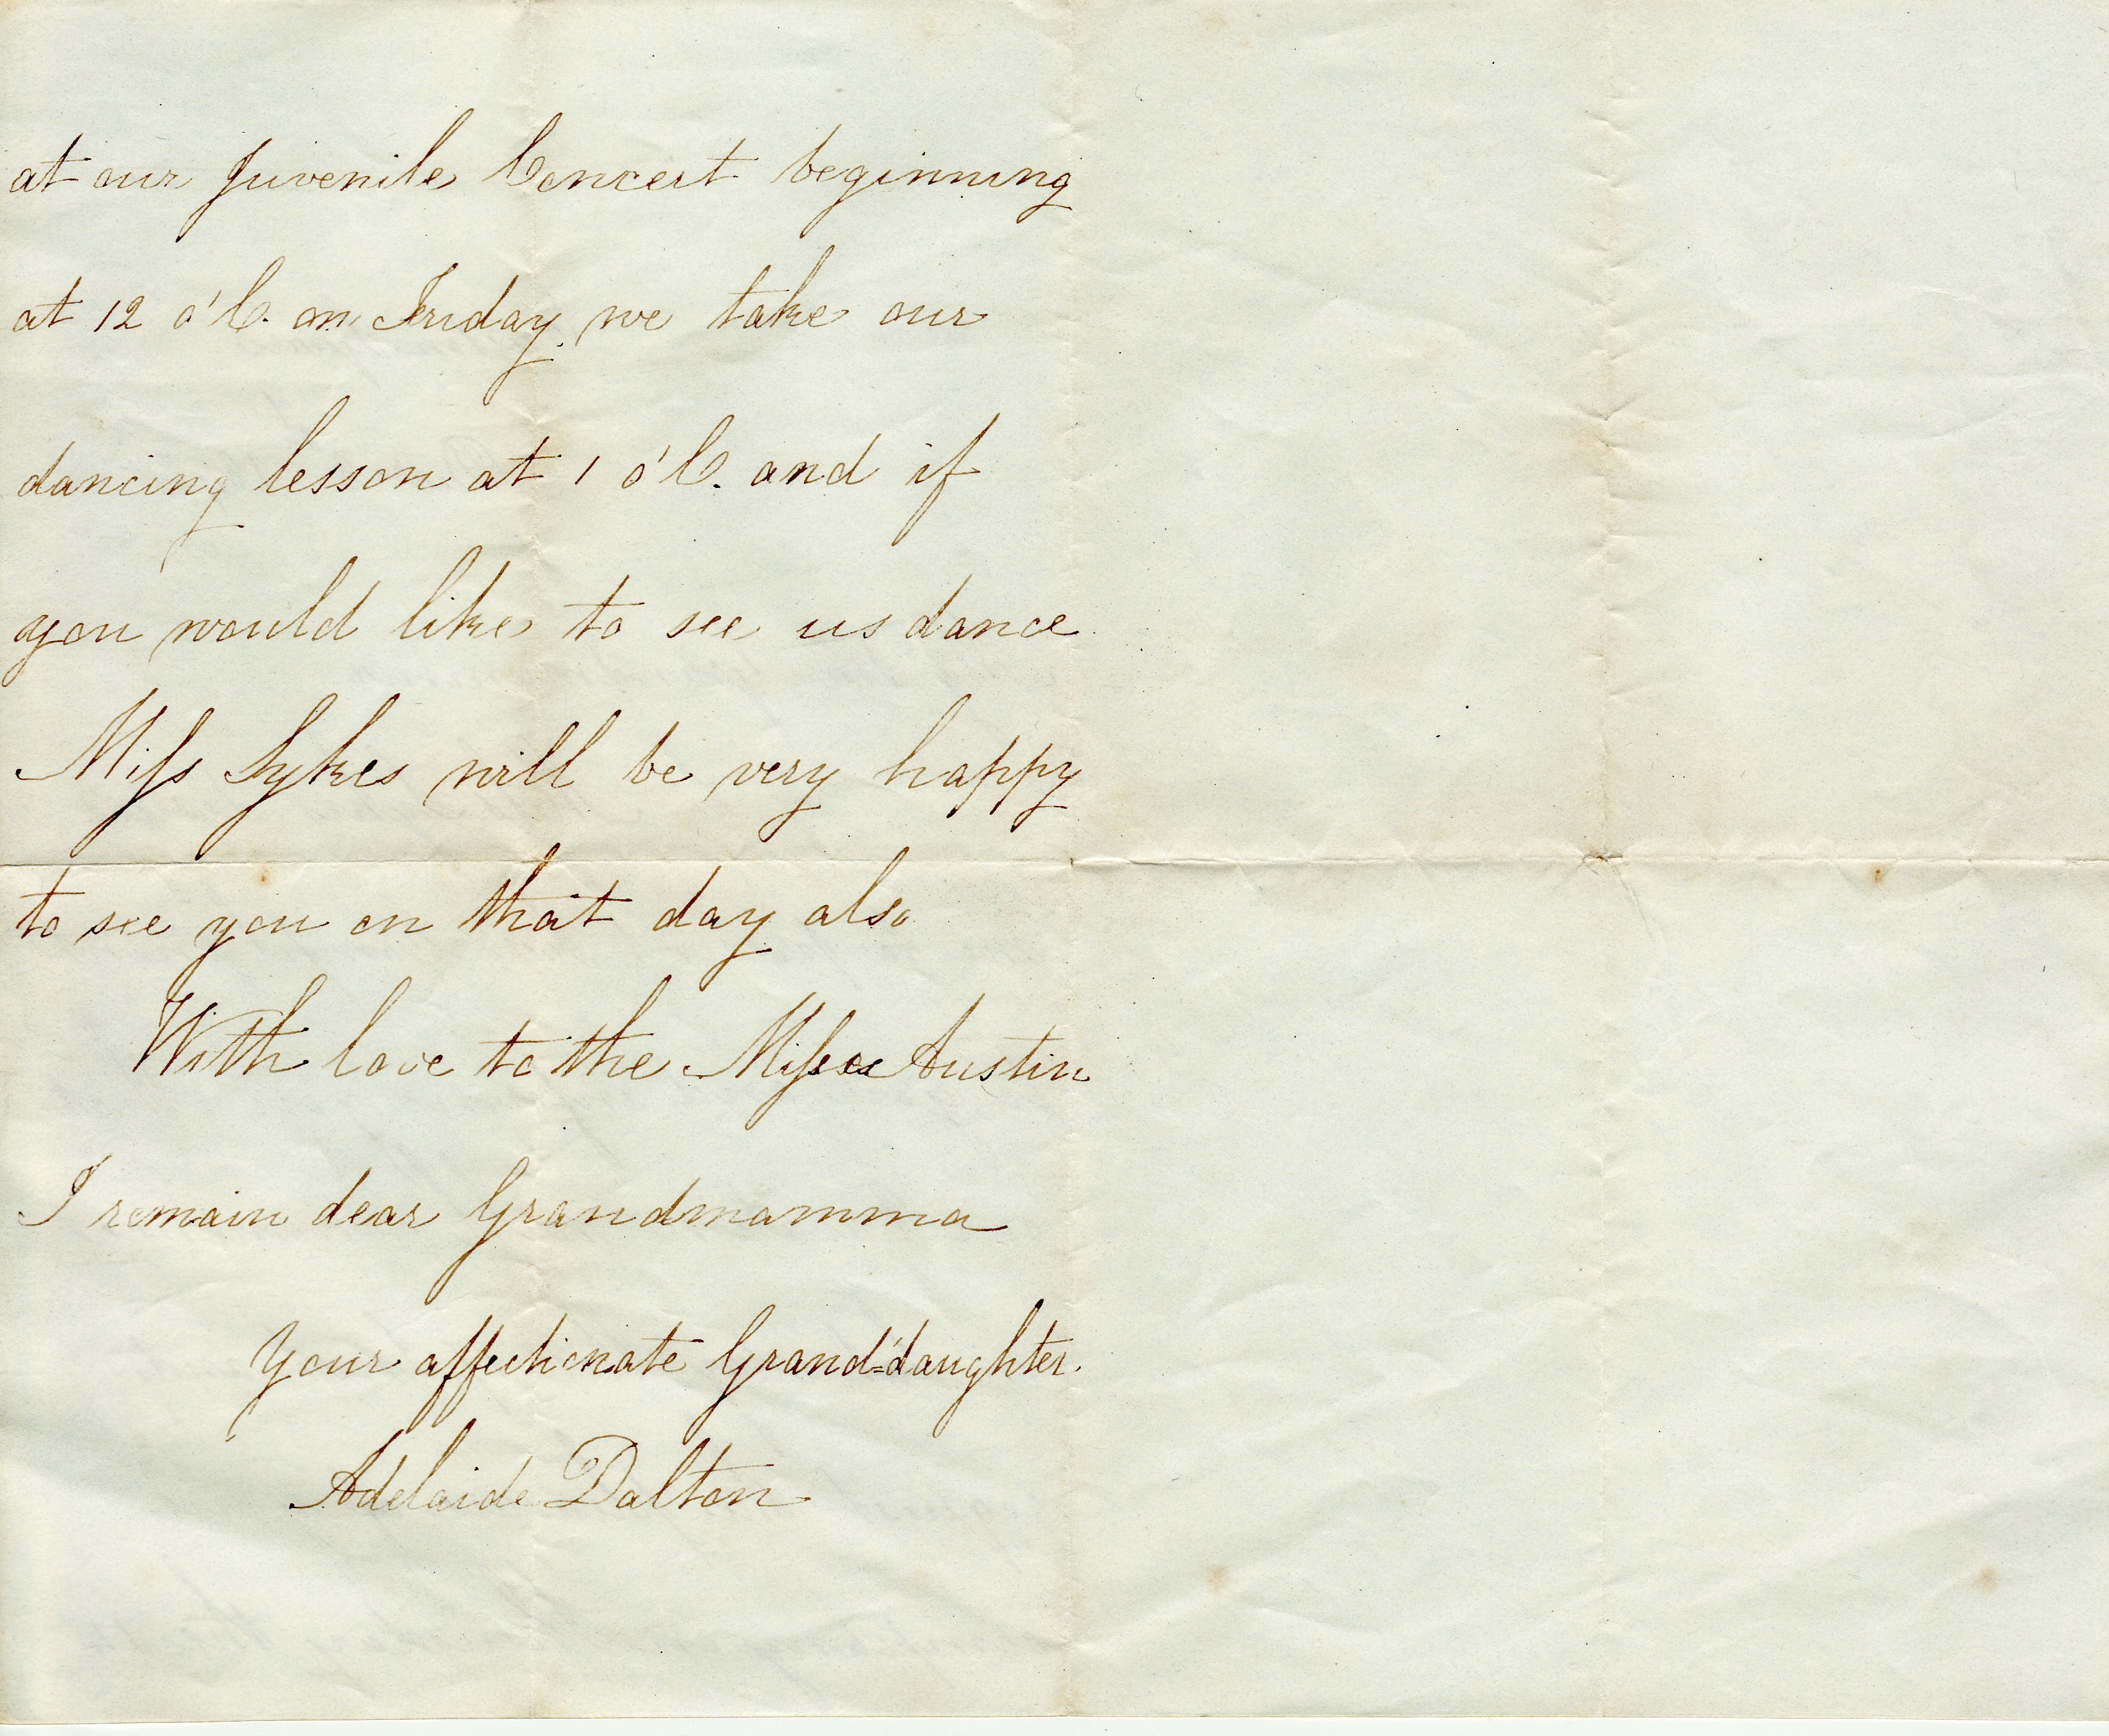 at our Juvenile Concert beginning
at 12 o'C. on Friday. we take our
dancing lesson at 1 o'C. and if
you would like to see us dance
Miſs Sykes will be very happy
to see you on that day also
With love to the Miſses Austin
I remain dear Grandmamma
Your affectionate Grand=daughter.
Adelaide Dalton